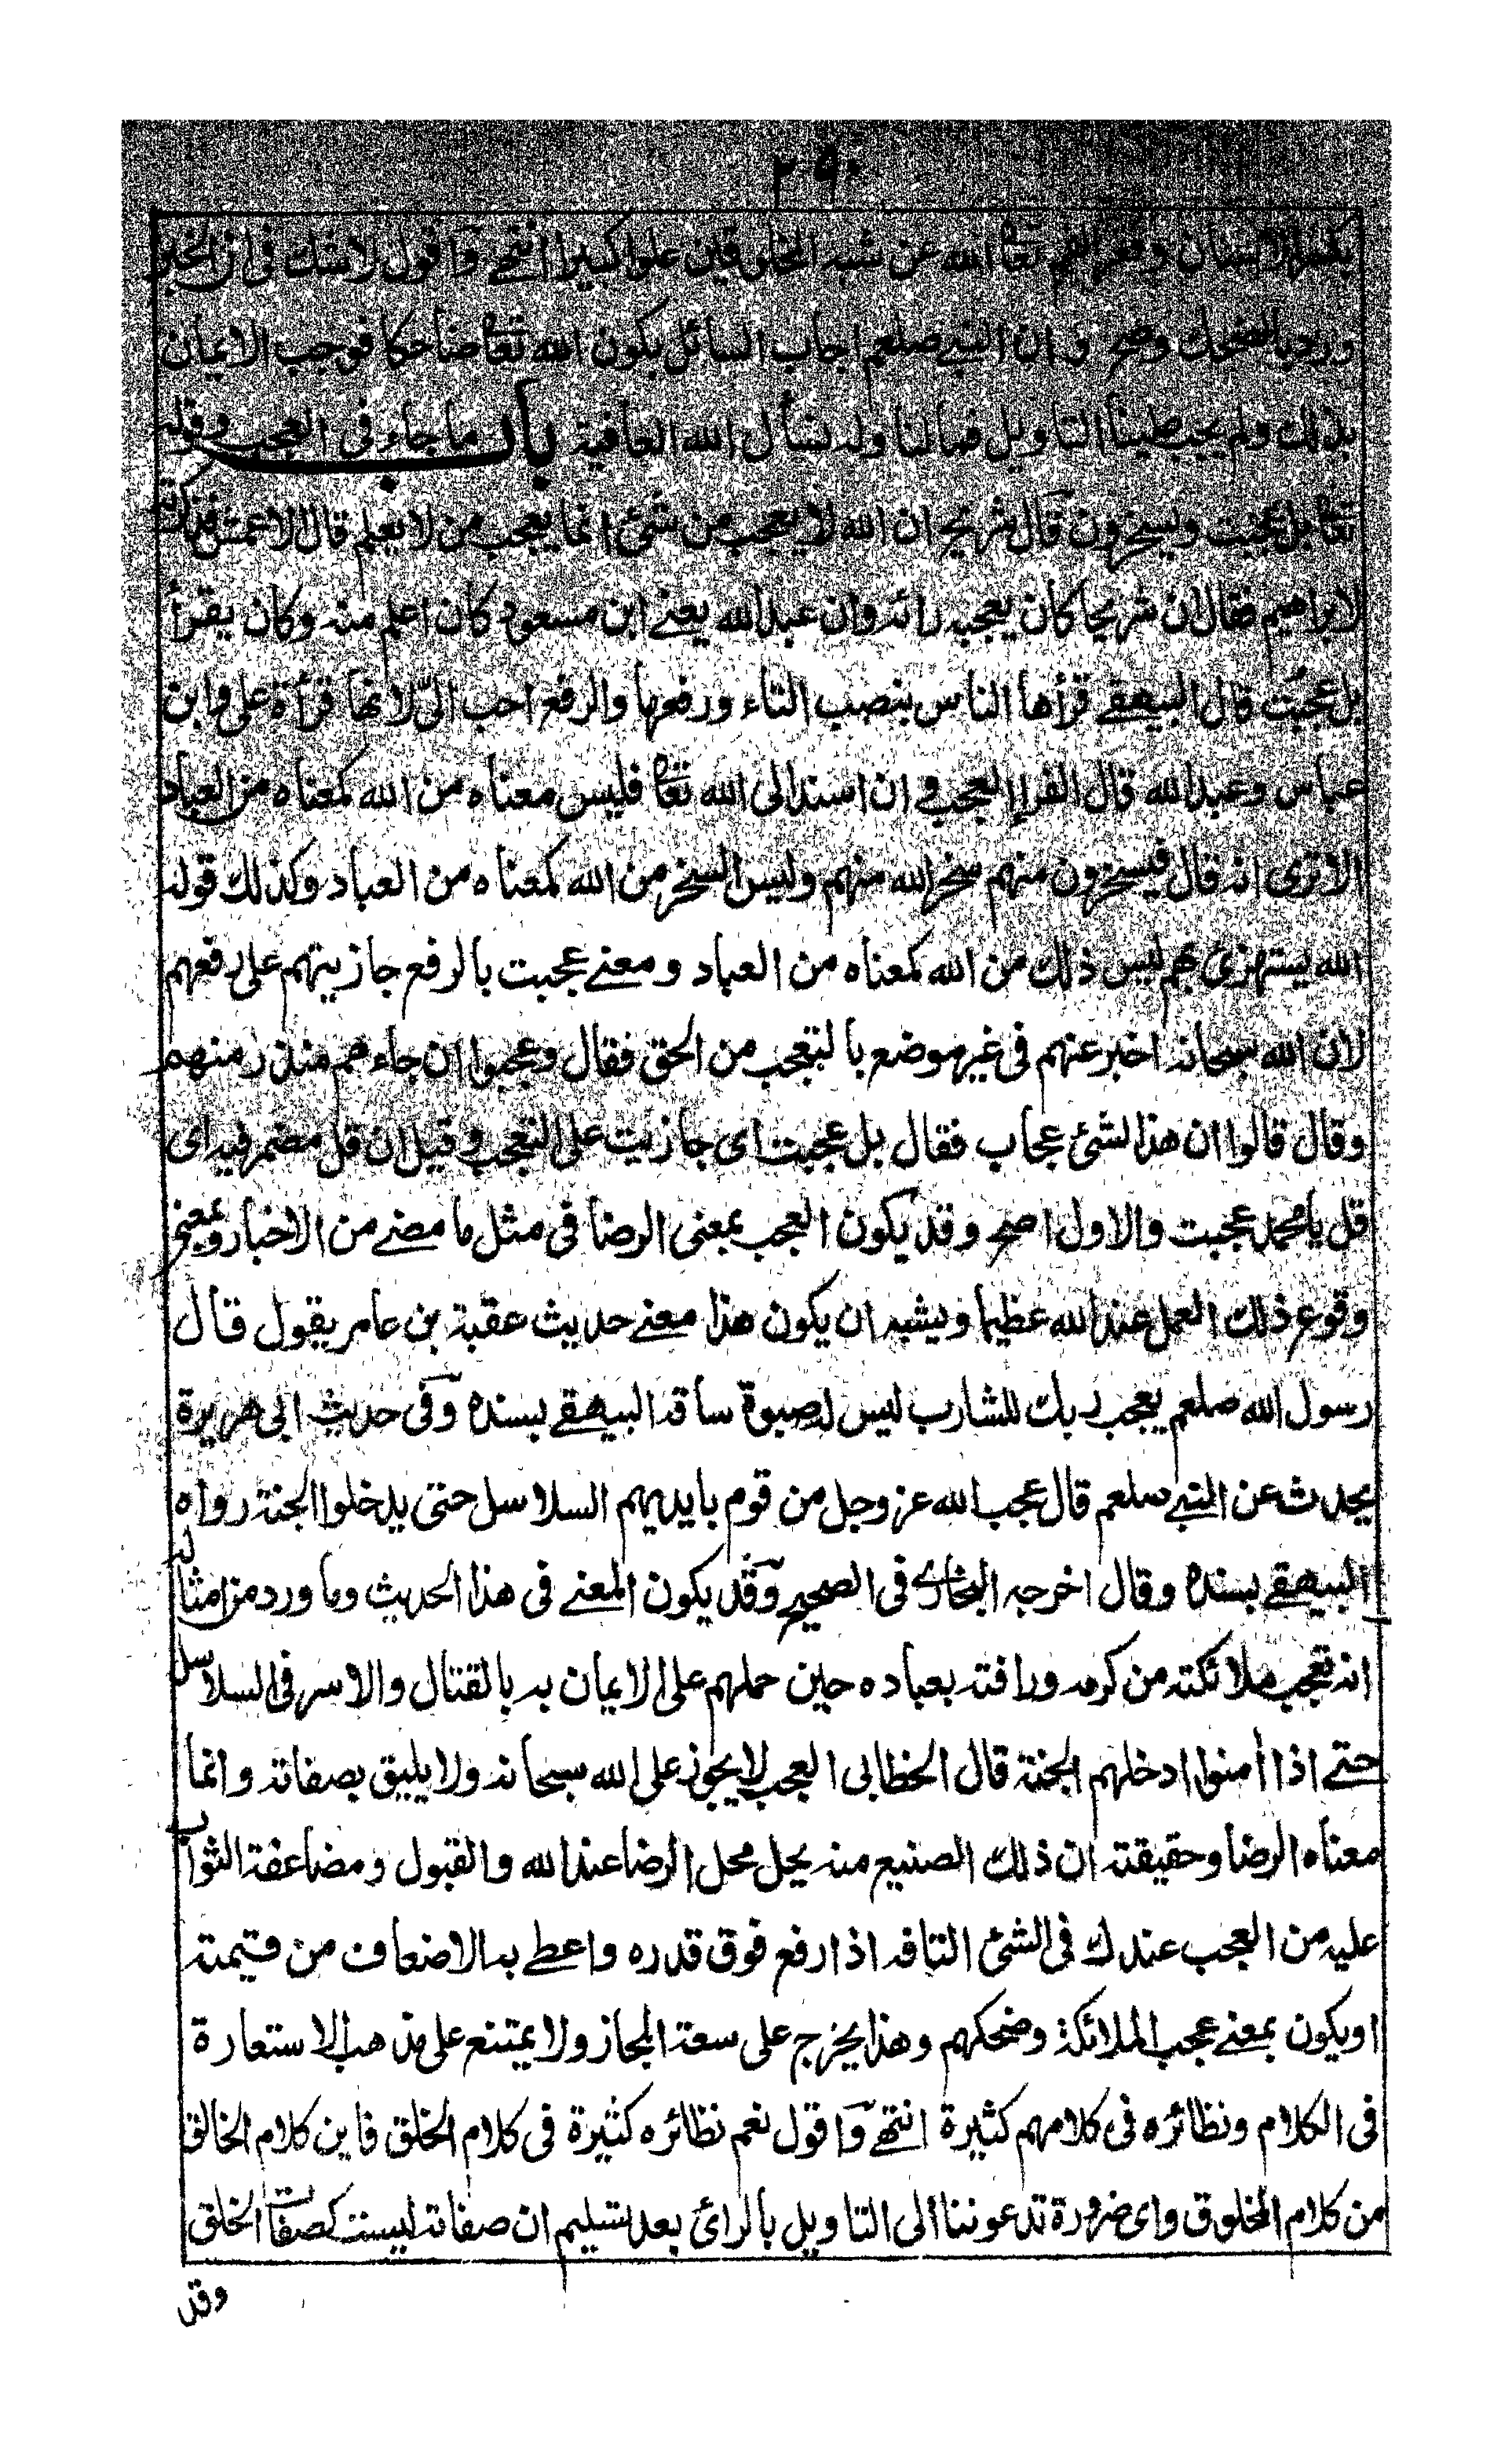 ٢٩٠
بكشر الاسنان وفغر الفم تعا الله عن شبه المخلوقين علوا كبيرا انتهے واقول لا شك فى ان الخبر
ورد بالضحك وصح وان النبے صلعم اجاب السائل بكون الله تعا ضاحكا فوجب الايمان
بذلك ولم يجب علينا التاويل فمالنا وله نسأل الله العافية باب ما جاء فى العجب وقوله
تعا بل عجبت ويسخرون قال شريح ان الله لا يعجب من شئ انما يعجب من لا يعلم قال الاعمش فذكرته
لابراهيم فقال ان شريحا كان يعجبه رائه وان عبد الله يعنے ابن مسعود كان اعلم منه وكان يقرأ
بل عجبت قال البيهقے قرأها الناس بنصب التاء ورفعها والرفع احب الىّ لانها قرأة على وابن
عباس وعبد الله قال الفراء العجب وان اسند الى الله تعا فليس معناه من الله كمعناه من العباد
الا ترى انه قال فيسخرون منهم سخر الله منهم وليس السخر من الله كمعناه من العباد وكذلك قوله
الله يستهزئ بهم ليس ذلك من الله كمعناه من العباد ومعنے عجبت بالرفع جازيتهم على رفعهم
لان الله سبحانه اخبر عنهم فى غير موضع بالتعجب من الحق فقال وعجبوا ان جاءهم منذر منهم
وقال قالوا ان هذا لشئ عجاب فقال بل عجبت اى جازيت على التعجب وقيل ان قل مضمر فيه اى
قل يا محمد عجبت والاول اصح وقد يكون العجب بمعنى الرضا فى مثل ما مضے من الاخبار وبمعنے
وقوع ذلك العمل عند الله عظيما ويشبه ان يكون هذا معنے حديث عقبة بن عامر يقول قال
رسول الله صلعم يعجب ربك للشارب ليس له صبوة ساقه البيهقے بسنده وفى حديث ابى هريرة
يحدث عن النبے صلعم قال عجب الله عز وجل من قوم بايديهم السلاسل حتى يدخلوا الجنة رواه
البيهقے بسنده وقال اخرجه البخارے فى الصحيح وقد يكون المعنے فى هذا الحديث وما ورد من امثاله
انه تعجب ملائكته من كرمه ورافته بعباده حين حملهم على الايمان به بالقتال والاسر فى السلاسل
حتے اذا أمنوا ادخلهم الجنة قال الخطابى العجب لا يجوز على الله سبحانه ولا يليق بصفاته وانما
معناه الرضا وحقيقته ان ذلك الصنيع منه يحل محل الرضا عند الله والقبول ومضاعفة الثواب
عليه من العجب عندك فى الشئ التافه اذا رفع فوق قدره واعطے به الاضعاف من قيمته
او يكون بمعنے عجب الملائكة وضحكهم وهذا يخرج على سعة المجاز ولا يمتنع على مذهب الاستعارة
فى الكلام ونظائره فى كلامهم كثيرة انتهے واقول نعم نظائره كثيرة فى كلام الخلق فاين كلام الخالق
من كلام المخلوق واى ضرورة تدعوننا الى التاويل بالرائ بعد تسليم ان صفاته ليست كصفات الخلق
وقد